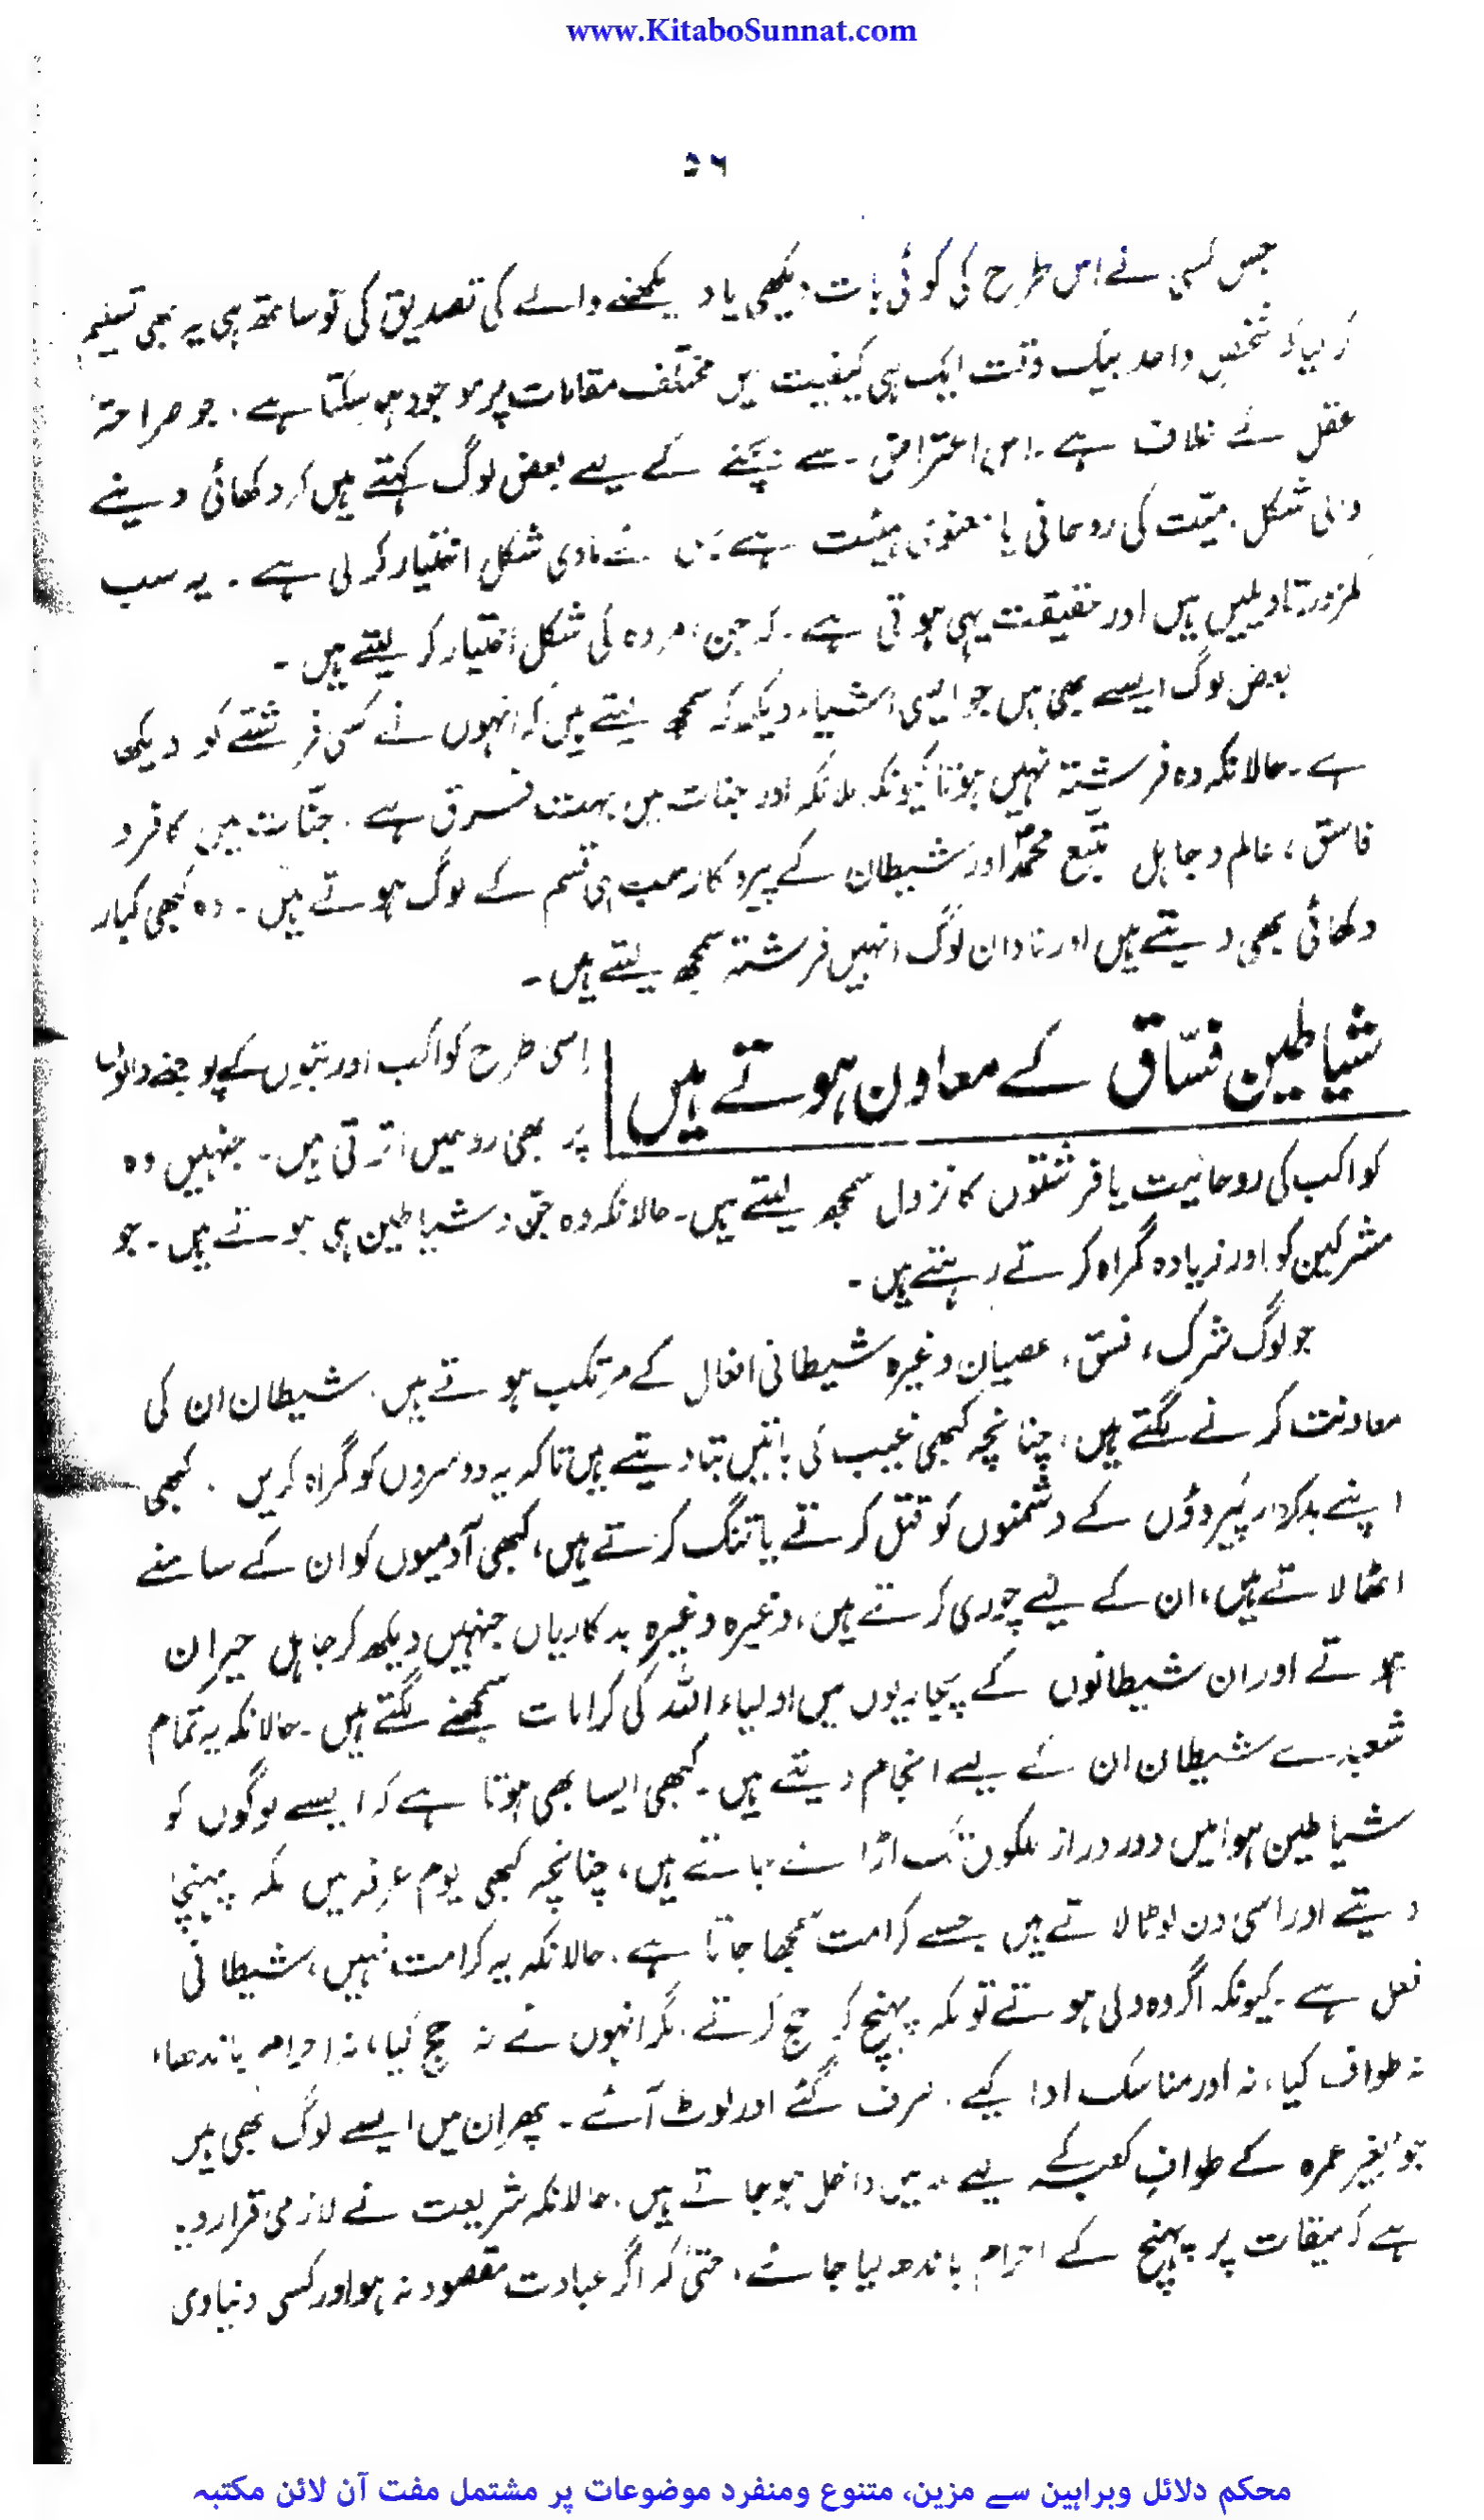 www.KitaboSunnat.com
۵۶
جس کسی نے اس طرح کی کوئی بات دیکھی یا دیکھنے والے کی تصدیق کی تو ساتھ ہی یہ بھی تسلیم
کر لیا کہ شخصِ واحد بیک وقت ایک ہی کیفیت میں مختلف مقامات پر موجود ہو سکتا ہے ۔ جو صراحتہً
عقل کے خلاف ہے ۔ اس اعتراض سے بچنے کے لیے بعض لوگ کہتے ہیں کہ دکھائی دینے
والی شکل میّت کی روحانی یا معنوی ہیئت ہے جس نے مادی شکل اختیار کر لی ہے ۔ یہ سب
کمزور تاویلیں ہیں اور حقیقت یہی ہوتی ہے ۔ کہ جن ، مردہ کی شکل اختیار کر لیتے ہیں ۔
بعض لوگ ایسے بھی ہیں جو ایسی اشیاء دیکھ کر سمجھ لیتے ہیں کہ انہوں نے کسی فرشتے کو دیکھا
ہے ۔ حالانکہ وہ فرشتہ نہیں ہوتا کیونکہ ملائکہ اور جنات میں بہت فرق ہے ۔ جنّات میں کافر و
فاسق ، عالم و جاہل متبع محمدؐ اور شیطان کے پیروکار سب ہی قسم کے لوگ ہوتے ہیں ۔ وہ کبھی کبھار
دکھائی بھی دیتے ہیں اور نادان لوگ انہیں فرشتہ سمجھ لیتے ہیں ۔
شیاطین فسّاق کے معاون ہوتے ہیں
اسی طرح کواکب اور بتوں کے پوجنے والوں
پر بھی روحیں اترتی ہیں ۔ جنہیں وہ
کواکب کی روحانیت یا فرشتوں کا نزول سمجھ لیتے ہیں ۔ حالانکہ وہ جنّ و شیاطین ہی ہوتے ہیں ۔ جو
مشرکین کو اور زیادہ گمراہ کرتے رہتے ہیں ۔
جو لوگ شرک ، فسق ، عصیان وغیرہ شیطانی افعال کے مرتکب ہوتے ہیں ۔ شیطان ان کی
معاونت کرنے لگتے ہیں ، چنانچہ کبھی غیب کی باتیں بتا دیتے ہیں تاکہ یہ دوسروں کو گمراہ کریں ۔ کبھی
اپنے بدکردار پَیروؤں کے دشمنوں کو قتل کرتے یا تنگ کرتے ہیں ، کبھی آدمیوں کو ان کے سامنے
اٹھا لاتے ہیں ، ان کے لیے چوری کرتے ہیں ، وغیرہ وغیرہ بدکاریاں جنہیں دیکھ کر جاہل حیران
ہوتے اور ان شیطانوں کے پجاریوں میں اولیاء اللہ کی کرامات سمجھنے لگتے ہیں ۔ حالانکہ یہ تمام
شعبدے شیطان ان کے لیے انجام دیتے ہیں ۔ کبھی ایسا بھی ہوتا ہے کہ ایسے لوگوں کو
شیاطین ہوا میں دور دراز ملکوں تک اڑا لے جاتے ہیں ، چنانچہ کبھی یوم عرفہ میں مکہ پہنچا
دیتے اور اسی دن لوٹا لاتے ہیں جسے کرامت سمجھا جاتا ہے ۔ حالانکہ یہ کرامت نہیں ، شیطانی
فعل ہے ۔ کیونکہ اگر وہ ولی ہوتے تو مکہ پہنچ کر حج کرتے ۔ مگر انہوں نے نہ حج کیا ، نہ احرام باندھا ،
نہ طواف کیا ، نہ اور مناسک ادا کیے ۔ صرف گئے اور لوٹ آئے ۔ پھر ان میں ایسے لوگ بھی ہیں
جو بغیر عمرہ کے طوافِ کعبہ کے لیے مکہ میں داخل ہو جاتے ہیں ۔ حالانکہ شریعت نے لازمی قرار دیا
ہے کہ میقات پر پہنچ کے احرام باندھ لیا جائے ، حتیٰ کہ اگر عبادت مقصود نہ ہو اور کسی دنیاوی
محکم دلائل وبراہین سے مزین، متنوع ومنفرد موضوعات پر مشتمل مفت آن لائن مکتبہ